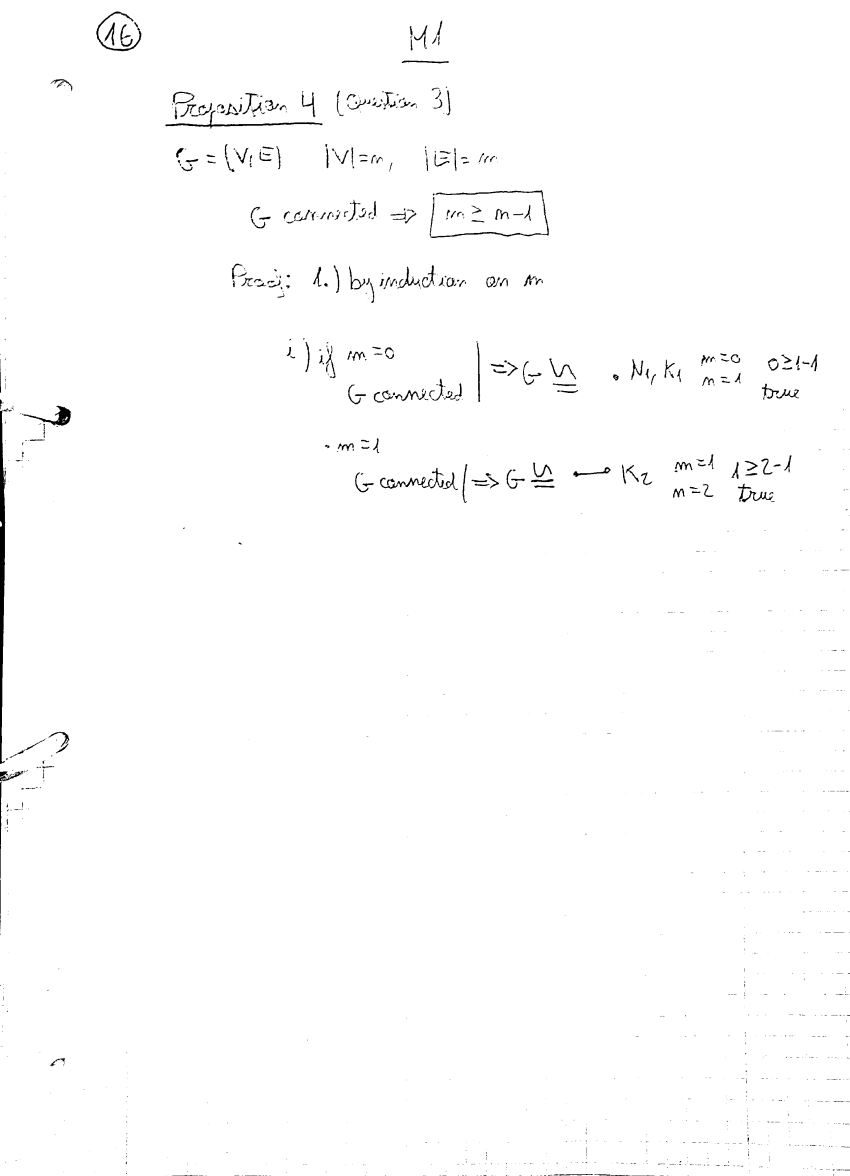 16
M1
Proposition 4 (Question 3)
G = (V, E) |V|=n, |E|= m
G connected => m ≥ n-1
Proof: 1.) by induction on m
i) if m=0
G connected | => G ≅ • N1, K1 m=0 n=1 0≥1-1 true
· m=1
G connected | => G ≅ K2 m=1 n=2 1≥2-1 true